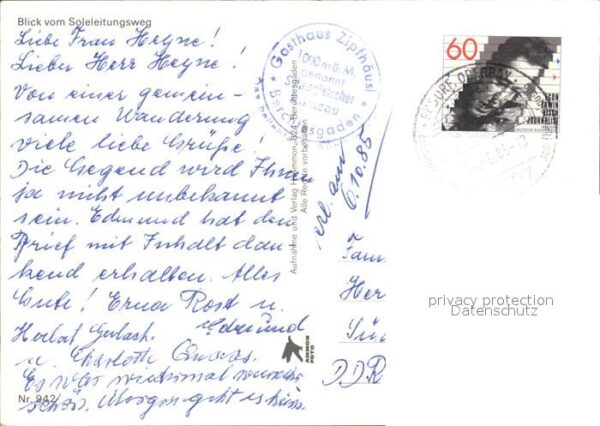 Blick vom Soleleitungsweg
Liebe Frau Heyne!
Lieber Herr Heyne!
Von einer gemein-
samen Wanderung
viele liebe Grüße!
Die Gegend wird Ihnen
ja nicht unbekannt
sein. Edmund hat den
Brief mit Inhalt dan
kend erhalten. Alles
Gute! Erna Rost u.
Edmund
u. Charlotte
Es war wiedermal
schön. Morgen geht es heim.
Nr. 942
Gasthaus Zipfhäusl
1000 m ü. M.
Berchtesgaden
erl. am
6.10.85
Aufnahme und Verlag Hammon, 824 Berchtesgaden
Alle Rechte vorbehalten
HAMMON
FOTO
60
EGON
ERWIN
KISCH
JOURNALIST
Fam
Her
DDR
privacy protection
Datenschutz